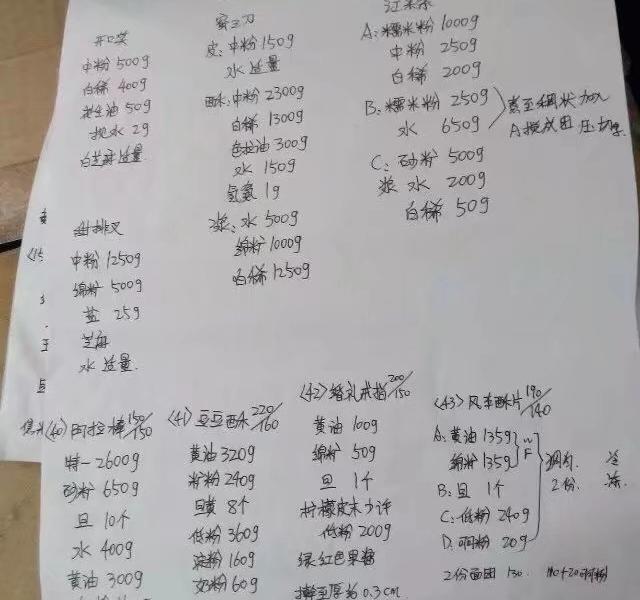 开口笑
中粉 500g
白稀 400g
花生油 50g
枧水 2g
白芝麻适量
甜排叉
中粉 1250g
绵粉 500g
盐 25g
芝麻
水 适量
蜜三刀
皮: 中粉 150g
水 适量
酥: 中粉 2300g
白稀 1300g
色拉油 300g
水 150g
氨氨 1g
浆: 水 500g
绵粉 1000g
白稀 1250g
江米条
A: 糯米粉 1000g
中粉 250g
白稀 200g
B: 糯米粉 250g
水 650g
蒸至稠状加入
A 搅成团 压切条
C: 砂粉 500g
浆 水 200g
白稀 50g
<40> 阿拉棒 150/150
特一 2600g
砂粉 650g
旦 10个
水 400g
黄油 300g
<41> 豆豆酥 220/160
黄油 320g
粉 240g
旦黄 8个
低粉 360g
淀粉 160g
奶粉 60g
<42> 婚礼戒指 200/150
黄油 100g
绵粉 50g
旦 1个
柠檬皮末少许
低粉 200g
绿红色果酱
擀至厚约 0.3cm
<43> 风车酥片 190/140
A: 黄油 135g
绵粉 135g
B: 旦 1个
C: 低粉 240g
D: 可粉 20g
2份
冷冻
2份面团 130